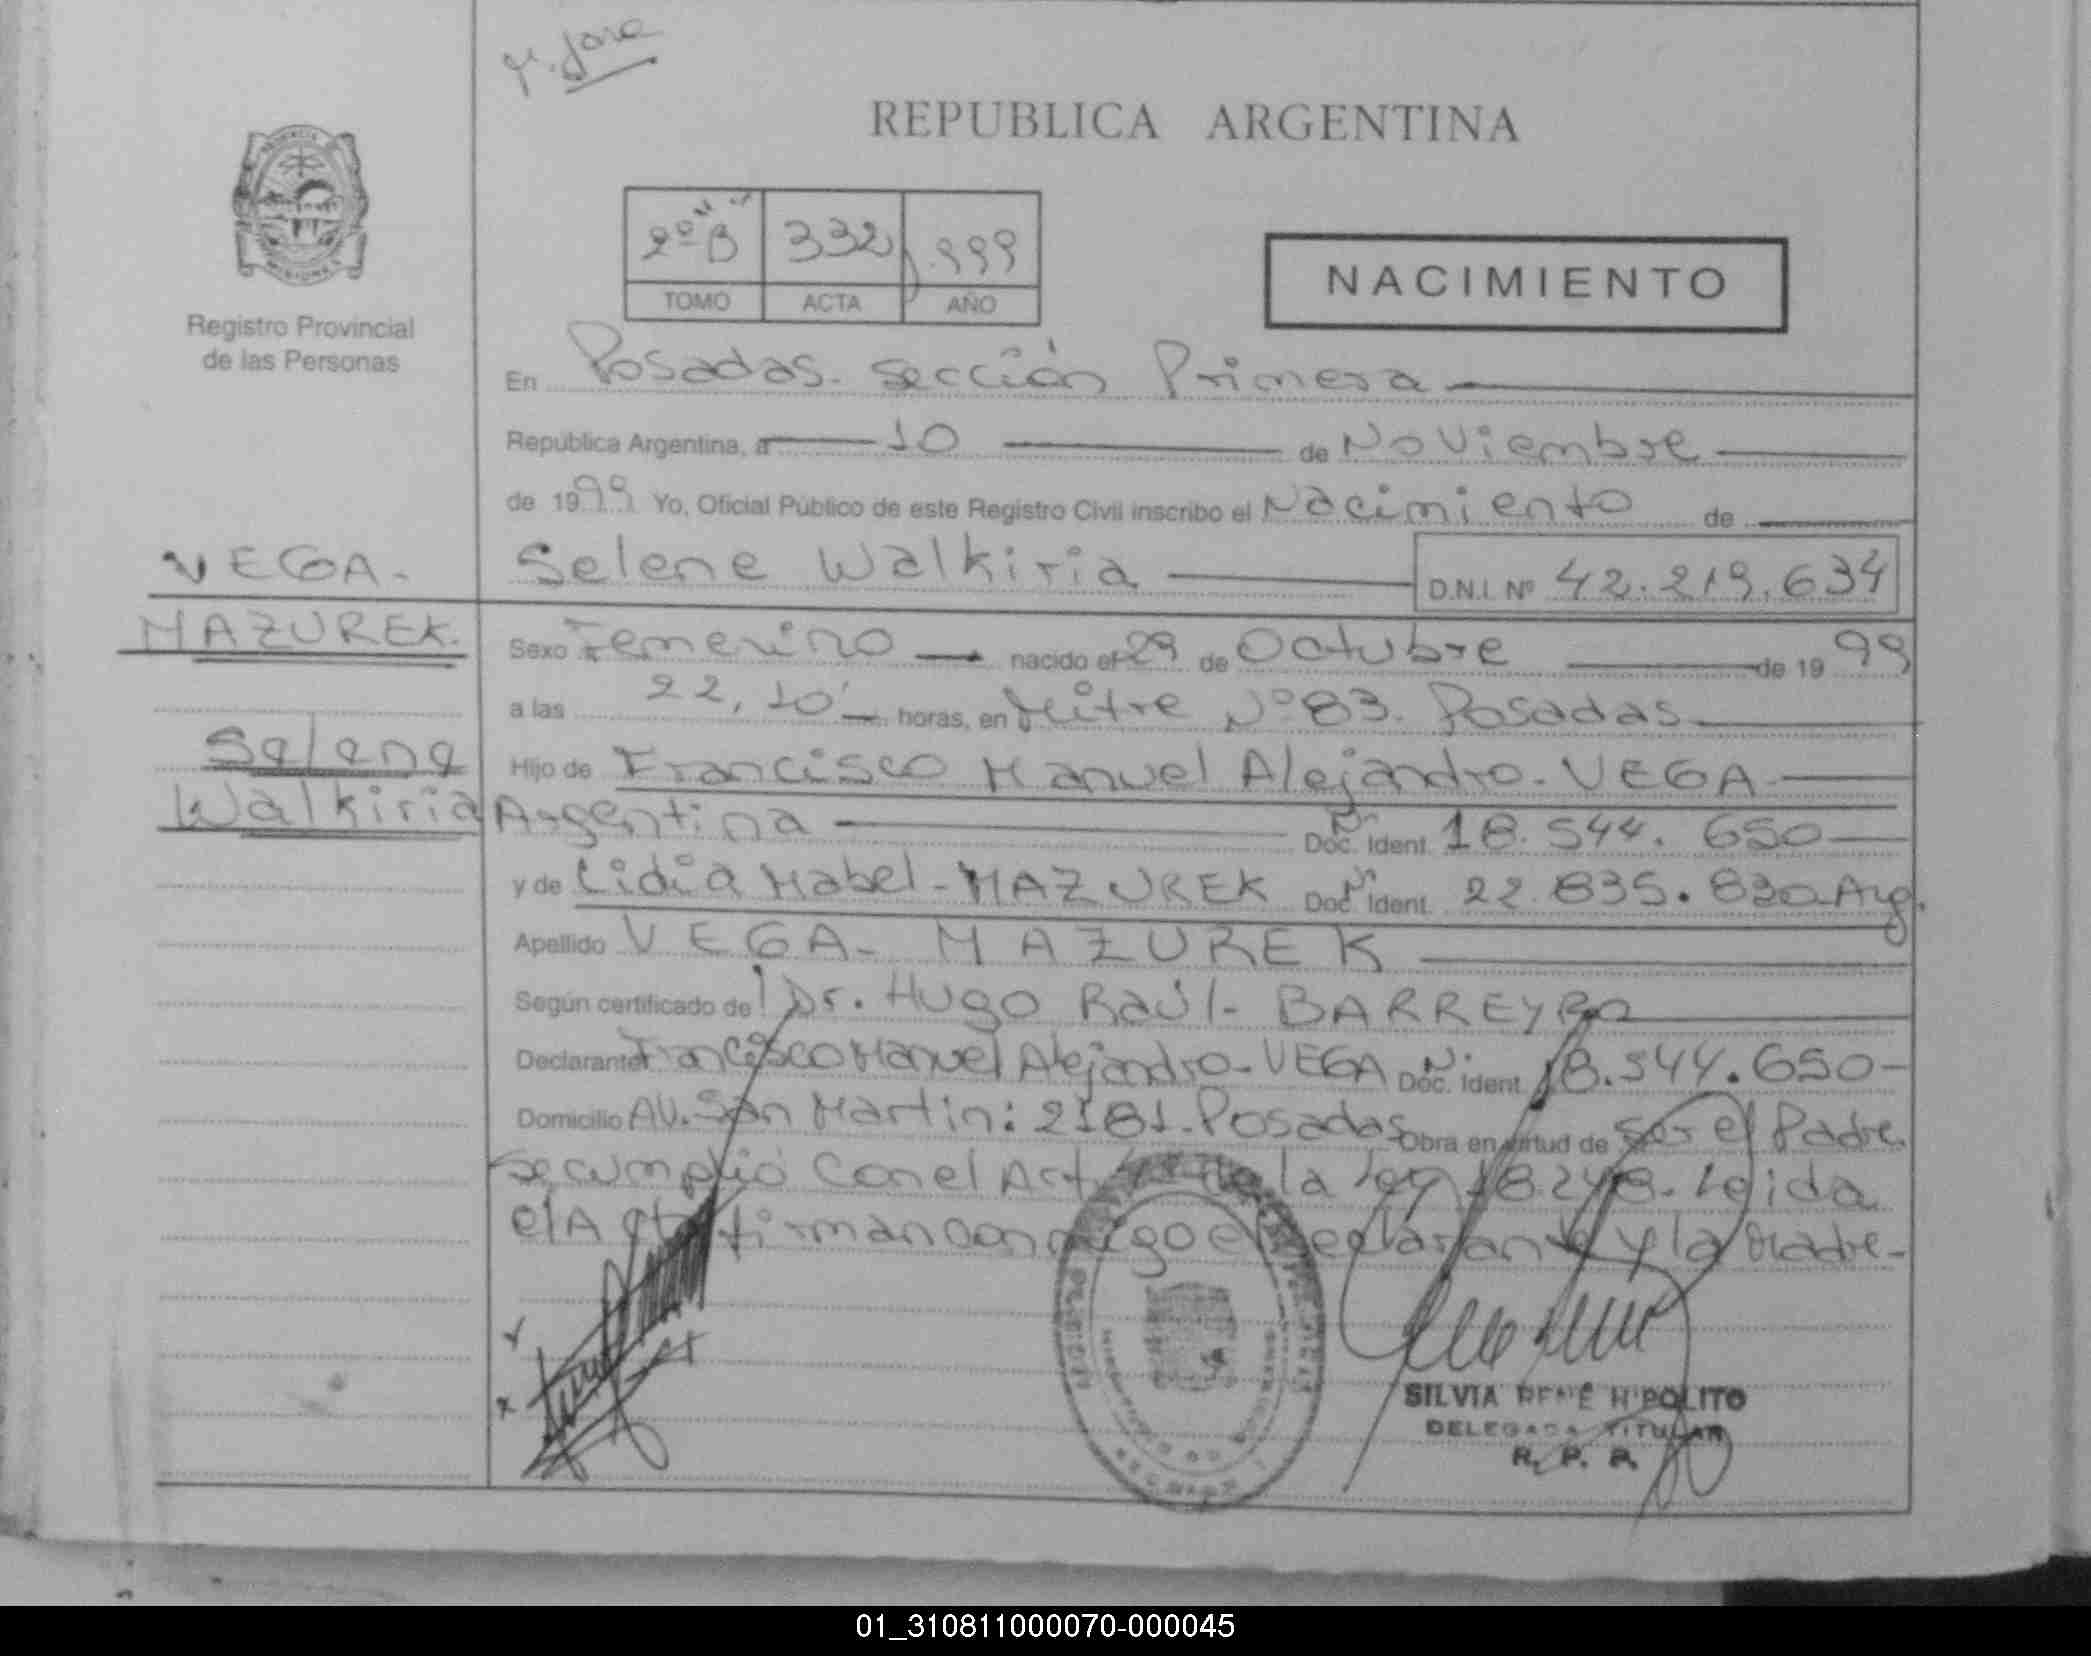 M. Jose
REPUBLICA ARGENTINA
2º "B" 332 1.999
TOMO ACTA AÑO
NACIMIENTO
Registro Provincial
de las Personas
En Posadas. Sección Primera
República Argentina, a 10 de Noviembre
de 1999 Yo, Oficial Público de este Registro Civil inscribo el Nacimiento de
VEGA-
MAZUREK.
Selene
Walkiria
Selene Walkiria D.N.I. Nº 42.219.634
Sexo Femenino nacido el 29 de Octubre de 1999
a las 22,10' horas, en Mitre Nº 83. Posadas
Hijo de Francisco Manuel Alejandro - VEGA
Argentina Doc. Ident. Nº 18.544.650
y de Lidia Mabel - MAZUREK Doc. Ident. Nº 22.835.830 Arg.
Apellido VEGA - MAZUREK
Según certificado de Dr. Hugo Raúl - BARREYRO
Declarante Francisco Manuel Alejandro - VEGA Doc. Ident. Nº 18.544.650
Domicilio AV. San Martin: 2181. Posadas Obra en virtud de Ser el Padre.
Se cumplió Con el Art. de la Ley 18.248. Leida
el Acta firman conmigo el Declarante y la Madre-
SILVIA RENÉ HIPOLITO
DELEGADA TITULAR
R. P. P.
01_310811000070-000045